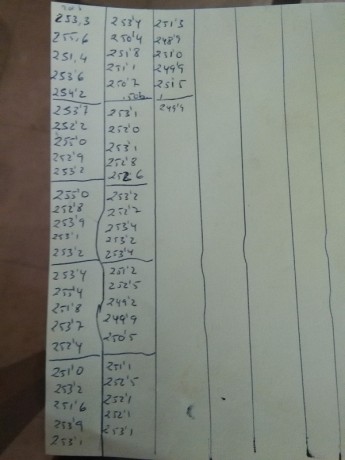 253,3
255,6
251,4
253'6
254'2
253'7
252'2
255'0
252'9
253'2
255'0
252'8
253'9
253'1
253'2
253'4
255'4
251'8
253'7
252'4
251'0
253'2
251'6
253'9
253'1
253'4
250'4
251'8
251'1
250'7
253'1
252'0
253'1
252'8
252'6
253'2
252'7
253'4
253'2
253'4
251'2
252'5
249'2
249'9
250'5
251'1
252'5
252'1
252'1
253'1
251'3
248'9
251'0
249'9
251'5
249'9